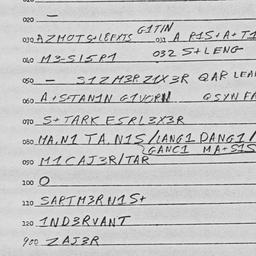 020 —
030 AZMOTS+LEFXTS G1TIN 031 A R1S+A+T1
040 M3-S15P1 032 S+LENG
050 — S1ZM3RZ1X3R QAR LEA
060 A+S+TAN1N G1VCRN QSYN FA
070 S+TARK ESRL3X3R
080 MA.N1 TA.N1S/IANG1 DANG1/
GANC1 MA+S1S
090 M1CAJ3R/TAR
100 O
110 SARTM3RN1S+
120 1ND3RVANT
900 ZAJ3R